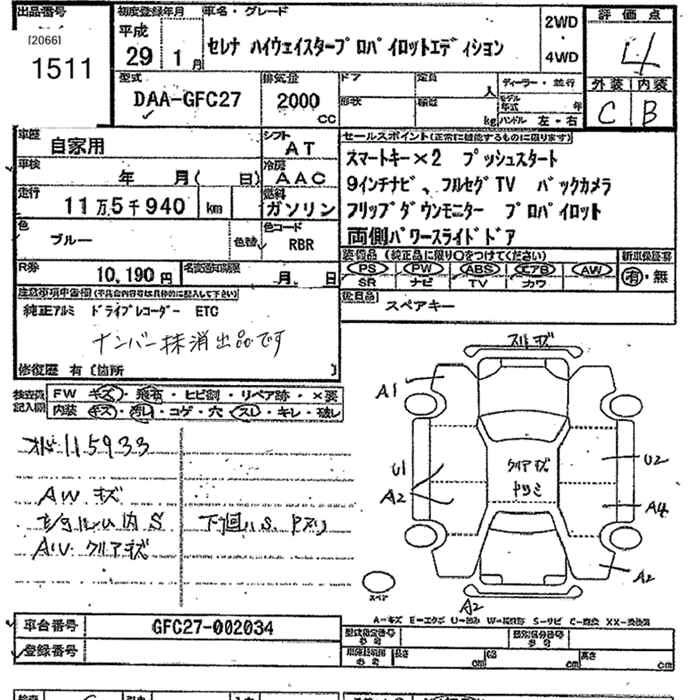 出品番号
[2066]
1511
初度登録年月
平成
29 1月
車名・グレード
セレナ ハイウェイスタープロパイロットエディション
2WD
・
4WD
評価点
4
外装 内装
C B
型式
DAA-GFC27
排気量
2000
CC
ドア
形状
定員
人
積載
kg
ディーラー・並行
モデル年式 年
ハンドル 左・右
車歴
自家用
シフト
AT
車検
年 月( 日)
冷房
AAC
走行
11万5千940 km
燃料
ガソリン
色
ブルー
色替
色コード
RBR
R券
10,190円
名変通知期限
月 日
セールスポイント(正常に機能するものに限ります)
スマートキー×2 プッシュスタート
9インチナビ、フルセグTV バックカメラ
フリップダウンモニター プロパイロット
両側パワースライドドア
装備品 (純正品に限り○をつけてください)
PS PW ABS エアB AW
SR ナビ TV カワ
新車保証書
有・無
後日品
スペアキー
注意事項申告欄(不具合内容は具体的に記入して下さい)
純正アルミ ドライブレコーダー ETC
ナンバー抹消出品です
修復歴 有 [箇所 ]
検査員記入欄
FW キズ・飛石・ヒビ割・リペア跡・×要
内装 キズ・汚れ・コゲ・穴・スレ・キレ・破レ
115933
AW キズ
下回りS
AW クリアキズ
A1
U1
A2
クリアキズ
U2
A4
A2
A2
スペア
A-キズ E-エクボ U-凹み W-補修跡 S-サビ C-腐食 XX-交換済
車台番号
GFC27-002034
登録番号
型式指定番号
類別区分番号
長さ cm
幅 cm
高さ cm